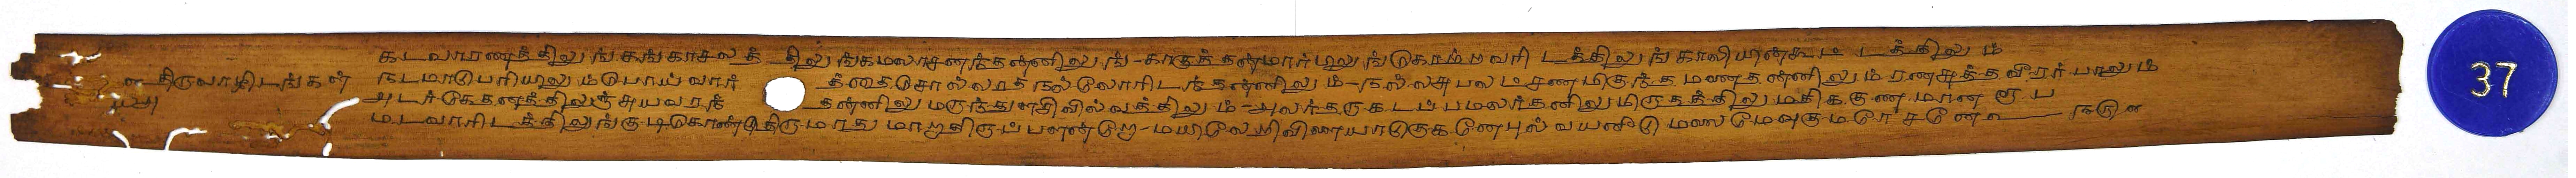 கடவாரணத்திலு ங்கங்காசலத் திலு ங்கமலாசனந்தன்னிலு ங் - காகுத்தன்மார்பிலு ங்கொம்பவரி டத்திலு ங்காலியின்கூட் டத்திலு ம்
ள திருவாழிடங்கள் நடமாடுபரியிலு ம்பொய்வார் த்தைசொல்லாத நல்லோரிடந்தன்னிலு ம் - நல்லசுபலட்சணமிகுந்த மனைதன்னிலு ம் ரணசுத்தவீரர்பாலும்
அடர்கேதனத்திலுஞ் சுயவரந் தன்னிலு மருந்துளசிவில்வத்திலு ம் - அலர்தருகடப்பமலர்தனிலுமிரதத்திலு மதிககுண மான ரூ ப
மடவாரிடத்திலுங்குடிகொண்டுதிருமாது மாறாதிருப்பளன்றே - மயிலேறிவிளையாடுகுகனேபுல்வயனீடு மலைமேவுகுமரேசனே
37